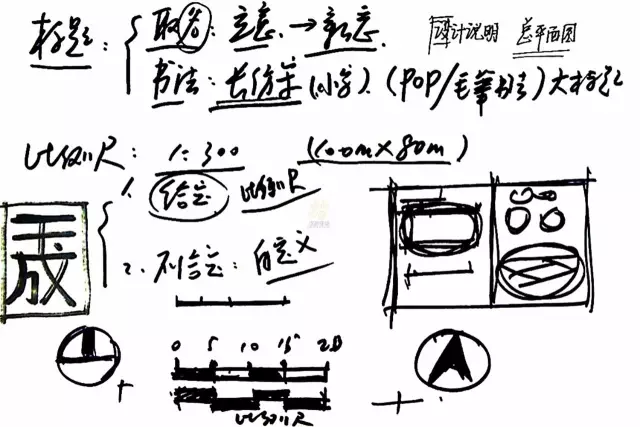 标题: 取名: 立意. → 新意.
设计说明 总平面图
书法: 长仿宋 (小字). (POP/毛笔书法) 大标题
比例尺: 1:300 (100m×80m)
1. 给定 比例尺
2. 不给定: 自定义
0 5 10 15 20
比例尺